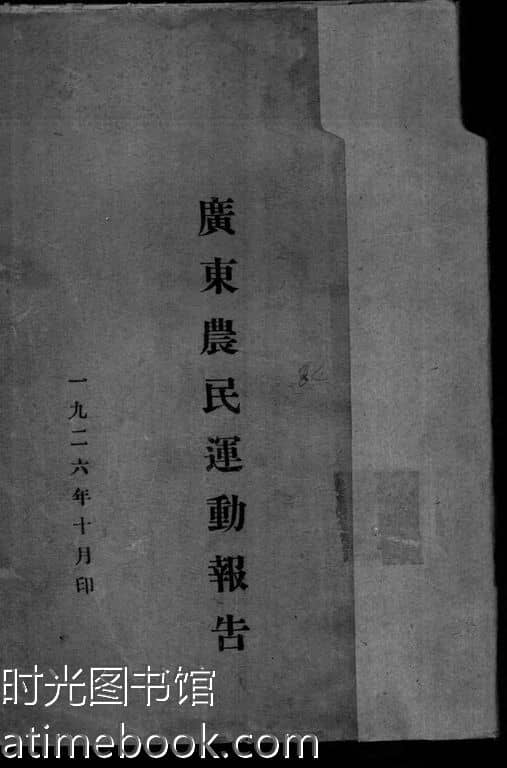 廣東農民運動報告
一九二六年十月印
时光图书馆
atimebook.com